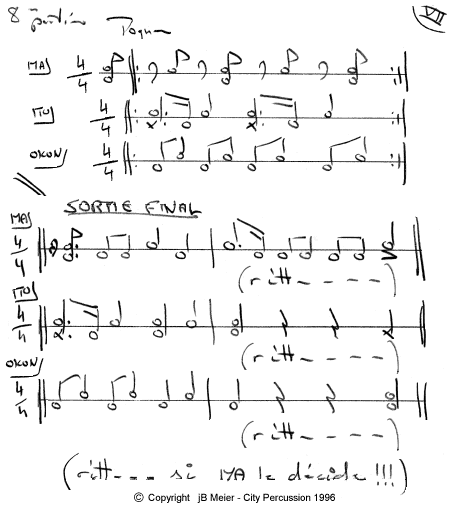 8
VII
MAJ 4/4
ITU 4/4
OKON 4/4
SORTIE FINAL
MAJ
4/4
(ritt - - - -)
ITU
4/4
(ritt - - - -)
OKON
4/4
(ritt - - - -)
(ritt - - - si MA le décide !!!)
© Copyright jB Meier - City Percussion 1996